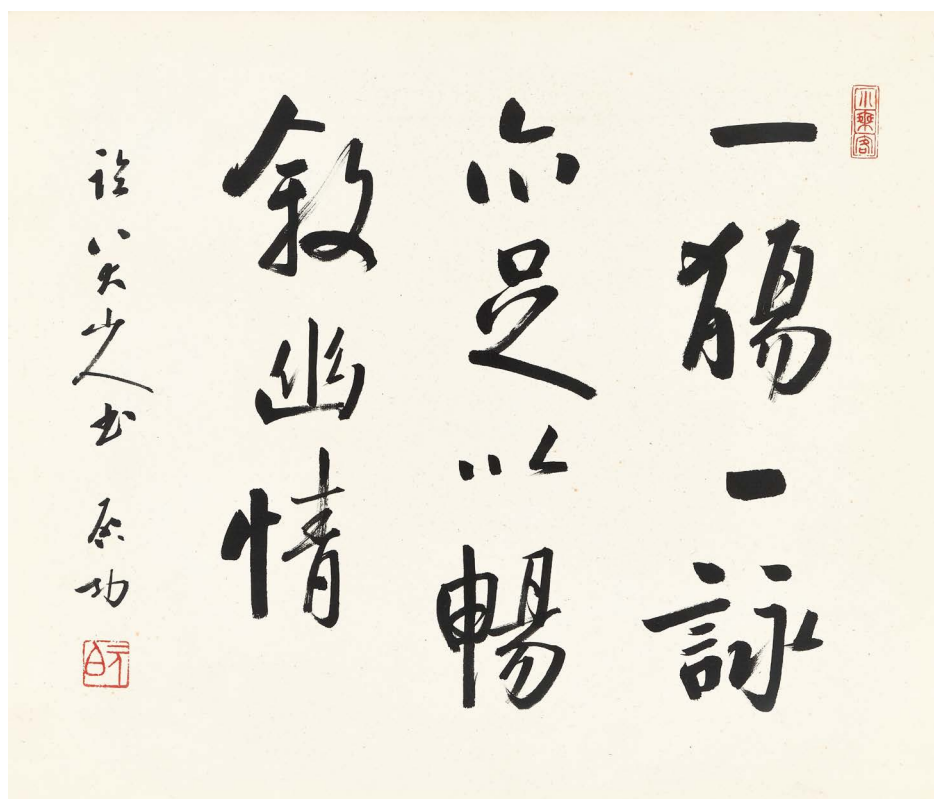 小乘客
一觴一詠
亦足以暢
敘幽情
臨八大山人书 启功
元白